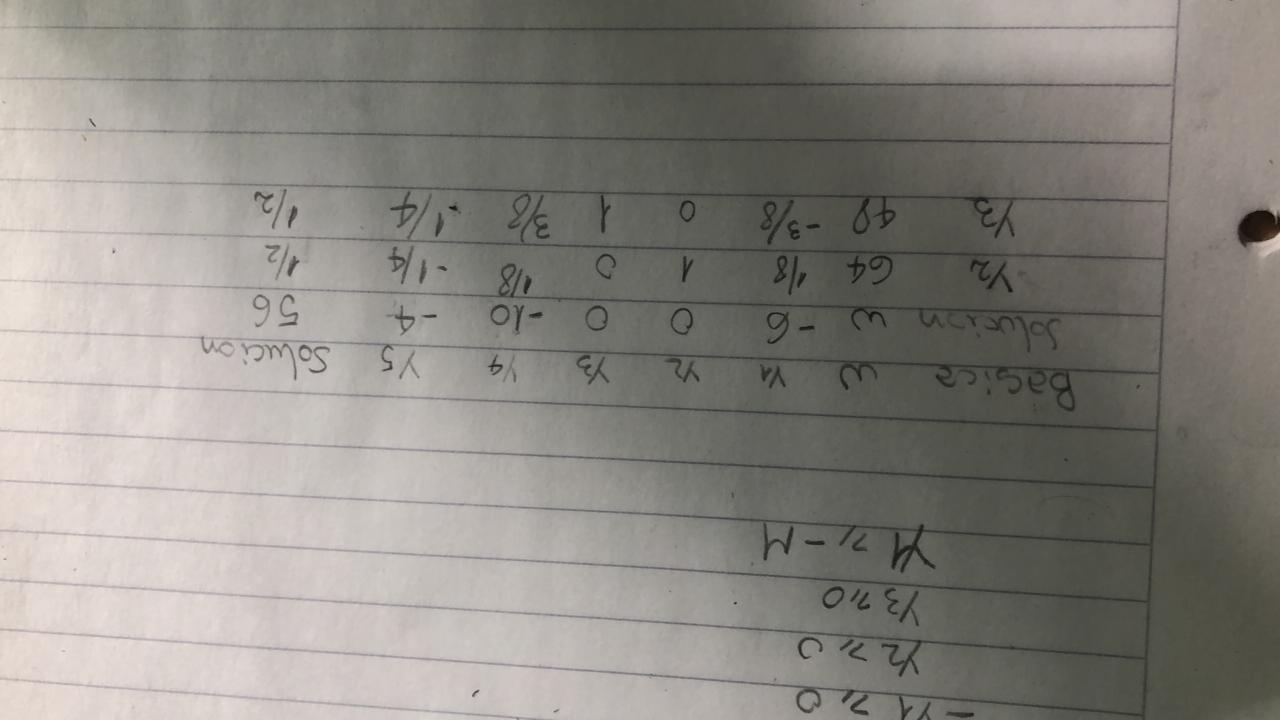 - Y1 ≥ 0
Y2 ≥ 0
Y3 ≥ 0
Y1 ≥ - M
Basica w Y1 Y2 Y3 Y4 Y5 Solucion
Solucion w -6 0 0 -10 -4 56
Y2 64 1/8 1 0 1/8 -1/4 1/2
Y3 48 -3/8 0 1 3/8 -1/4 1/2